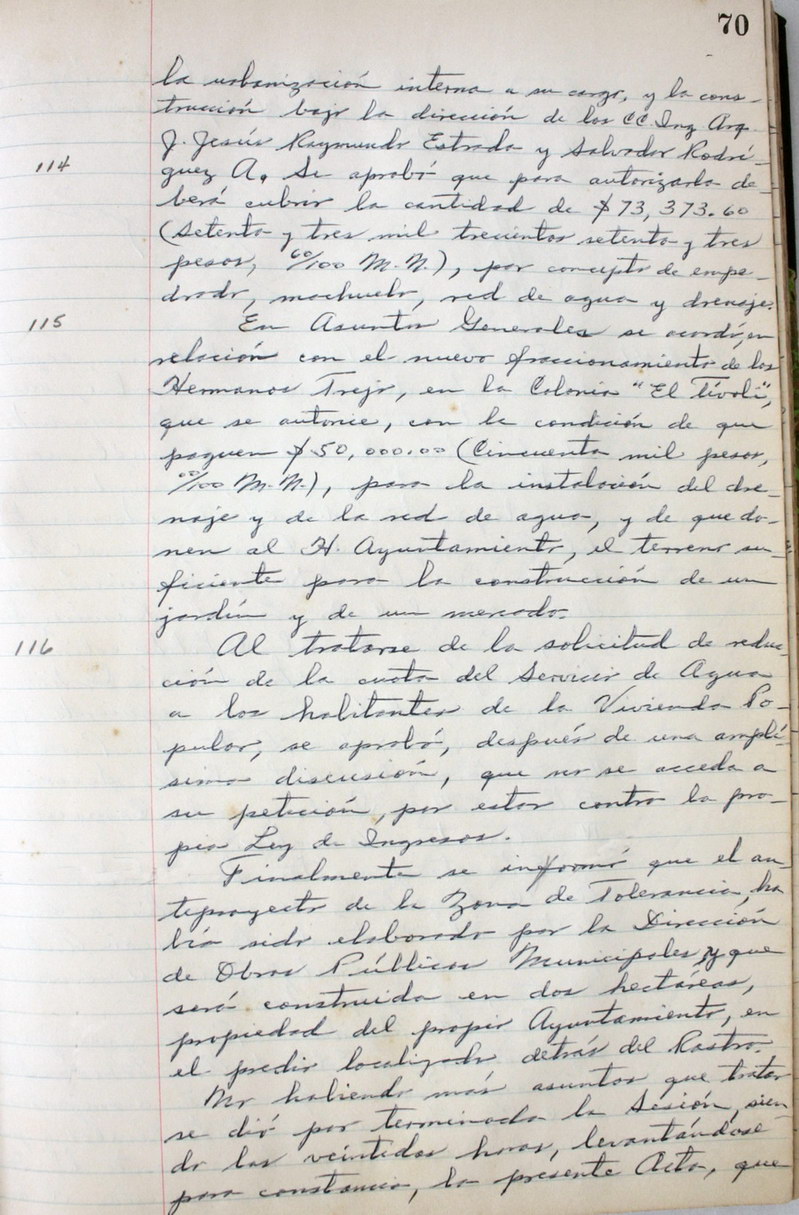 70
la urbanización interna a su cargo, y la cons-
trucción bajo la dirección de los CC. Ing. Arq.
J. Jesús Raymundo Estrada y Salvador Rodrí-
114 guez A. Se aprobó que para autorizarla de-
berá cubrir la cantidad de $73,373.60
(Setenta y tres mil trecientos setenta y tres
pesos, 60/100 M.N.), por concepto de empe-
drado, machuelo, red de agua y drenaje.
115 En Asuntos Generales se acordó, en
relación con el nuevo fraccionamiento de los
Hermanos Trejo, en la Colonia "El Tívoli",
que se autorice, con la condición de que
paguen $50,000.00 (Cincuenta mil pesos,
00/100 M.N.), para la instalación del dre-
naje y de la red de agua, y de que do-
nen al H. Ayuntamiento, el terreno su-
ficiente para la construcción de un
jardín y de un mercado.
116 Al tratarse de la solicitud de reduc-
ción de la cuota del Servicio de Agua
a los habitantes de la Vivienda Po-
pular, se aprobó, después de una amplí-
sima discusión, que no se acceda a
su petición, por estar contra la pro-
pia Ley de Ingresos.
Finalmente se informó que el an-
teproyecto de la Zona de Tolerancia, ha
bía sido elaborado por la Dirección
de Obras Públicas Municipales, y que
será construida en dos hectáreas,
propiedad del propio Ayuntamiento, en
el predio localizado detrás del Rastro.
No habiendo más asuntos que tratar
se dió por terminada la Sesión, sien
do las veintidos horas, levantándose
para constancia, la presente Acta, que